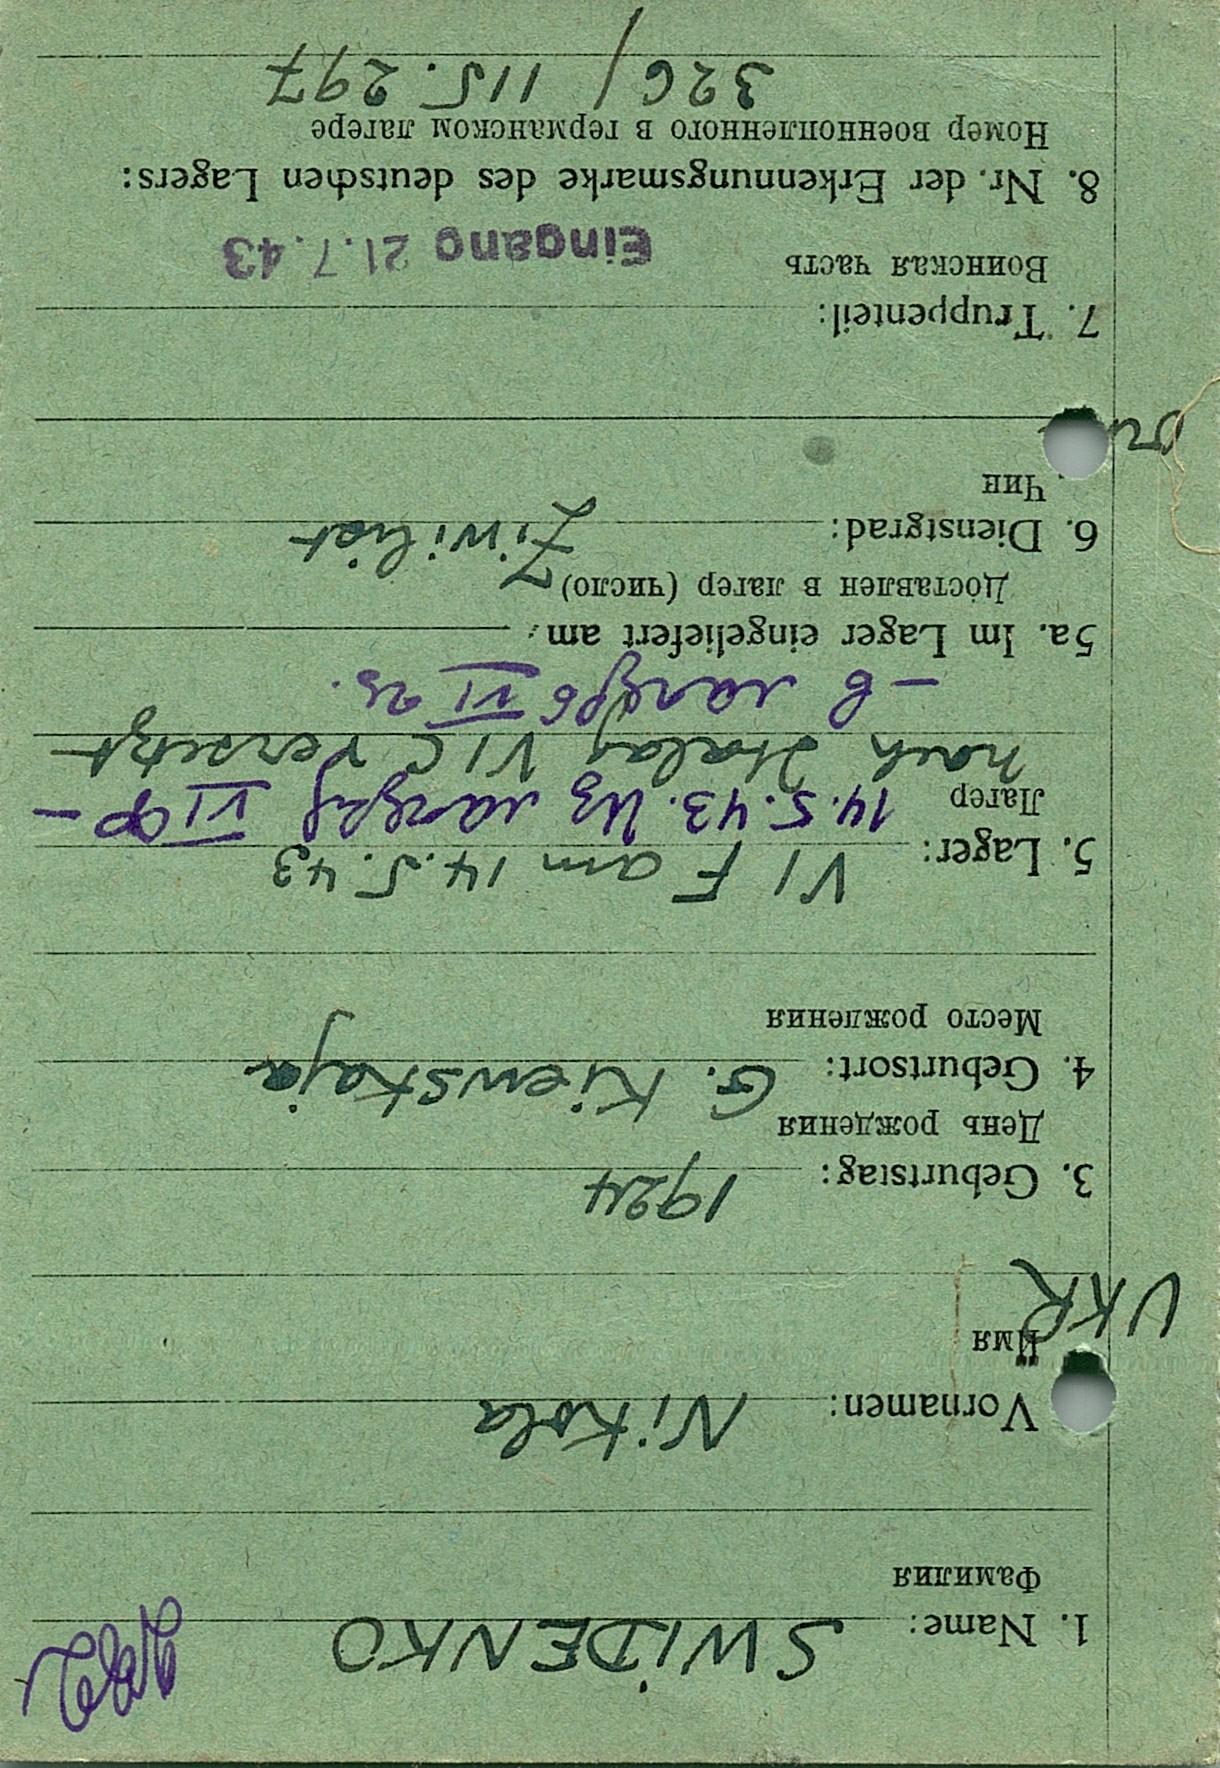 1. Name: SWIDENKO
Фамилия
Vornamen: Nikola
Имя
UKR
3. Geburtstag: 1924
День рождения
4. Geburtsort: G. Kiewskaja
Место рождения
5. Lager: VI F am 14.5.43
Лагер 14.5.43. Из лагеря VI Ф –
nach Stalag VI C versetzt
– в лагерь VI
5a. Im Lager eingeliefert am:
Доставлен в лагер (число)
6. Dienstgrad: Zivilist
Чин
7. Truppenteil:
Воинская часть
Eingang 21.7.43
8. Nr. der Erkennungsmarke des deutschen Lagers:
Номер военнопленного в германском лагере
326/ 115.297